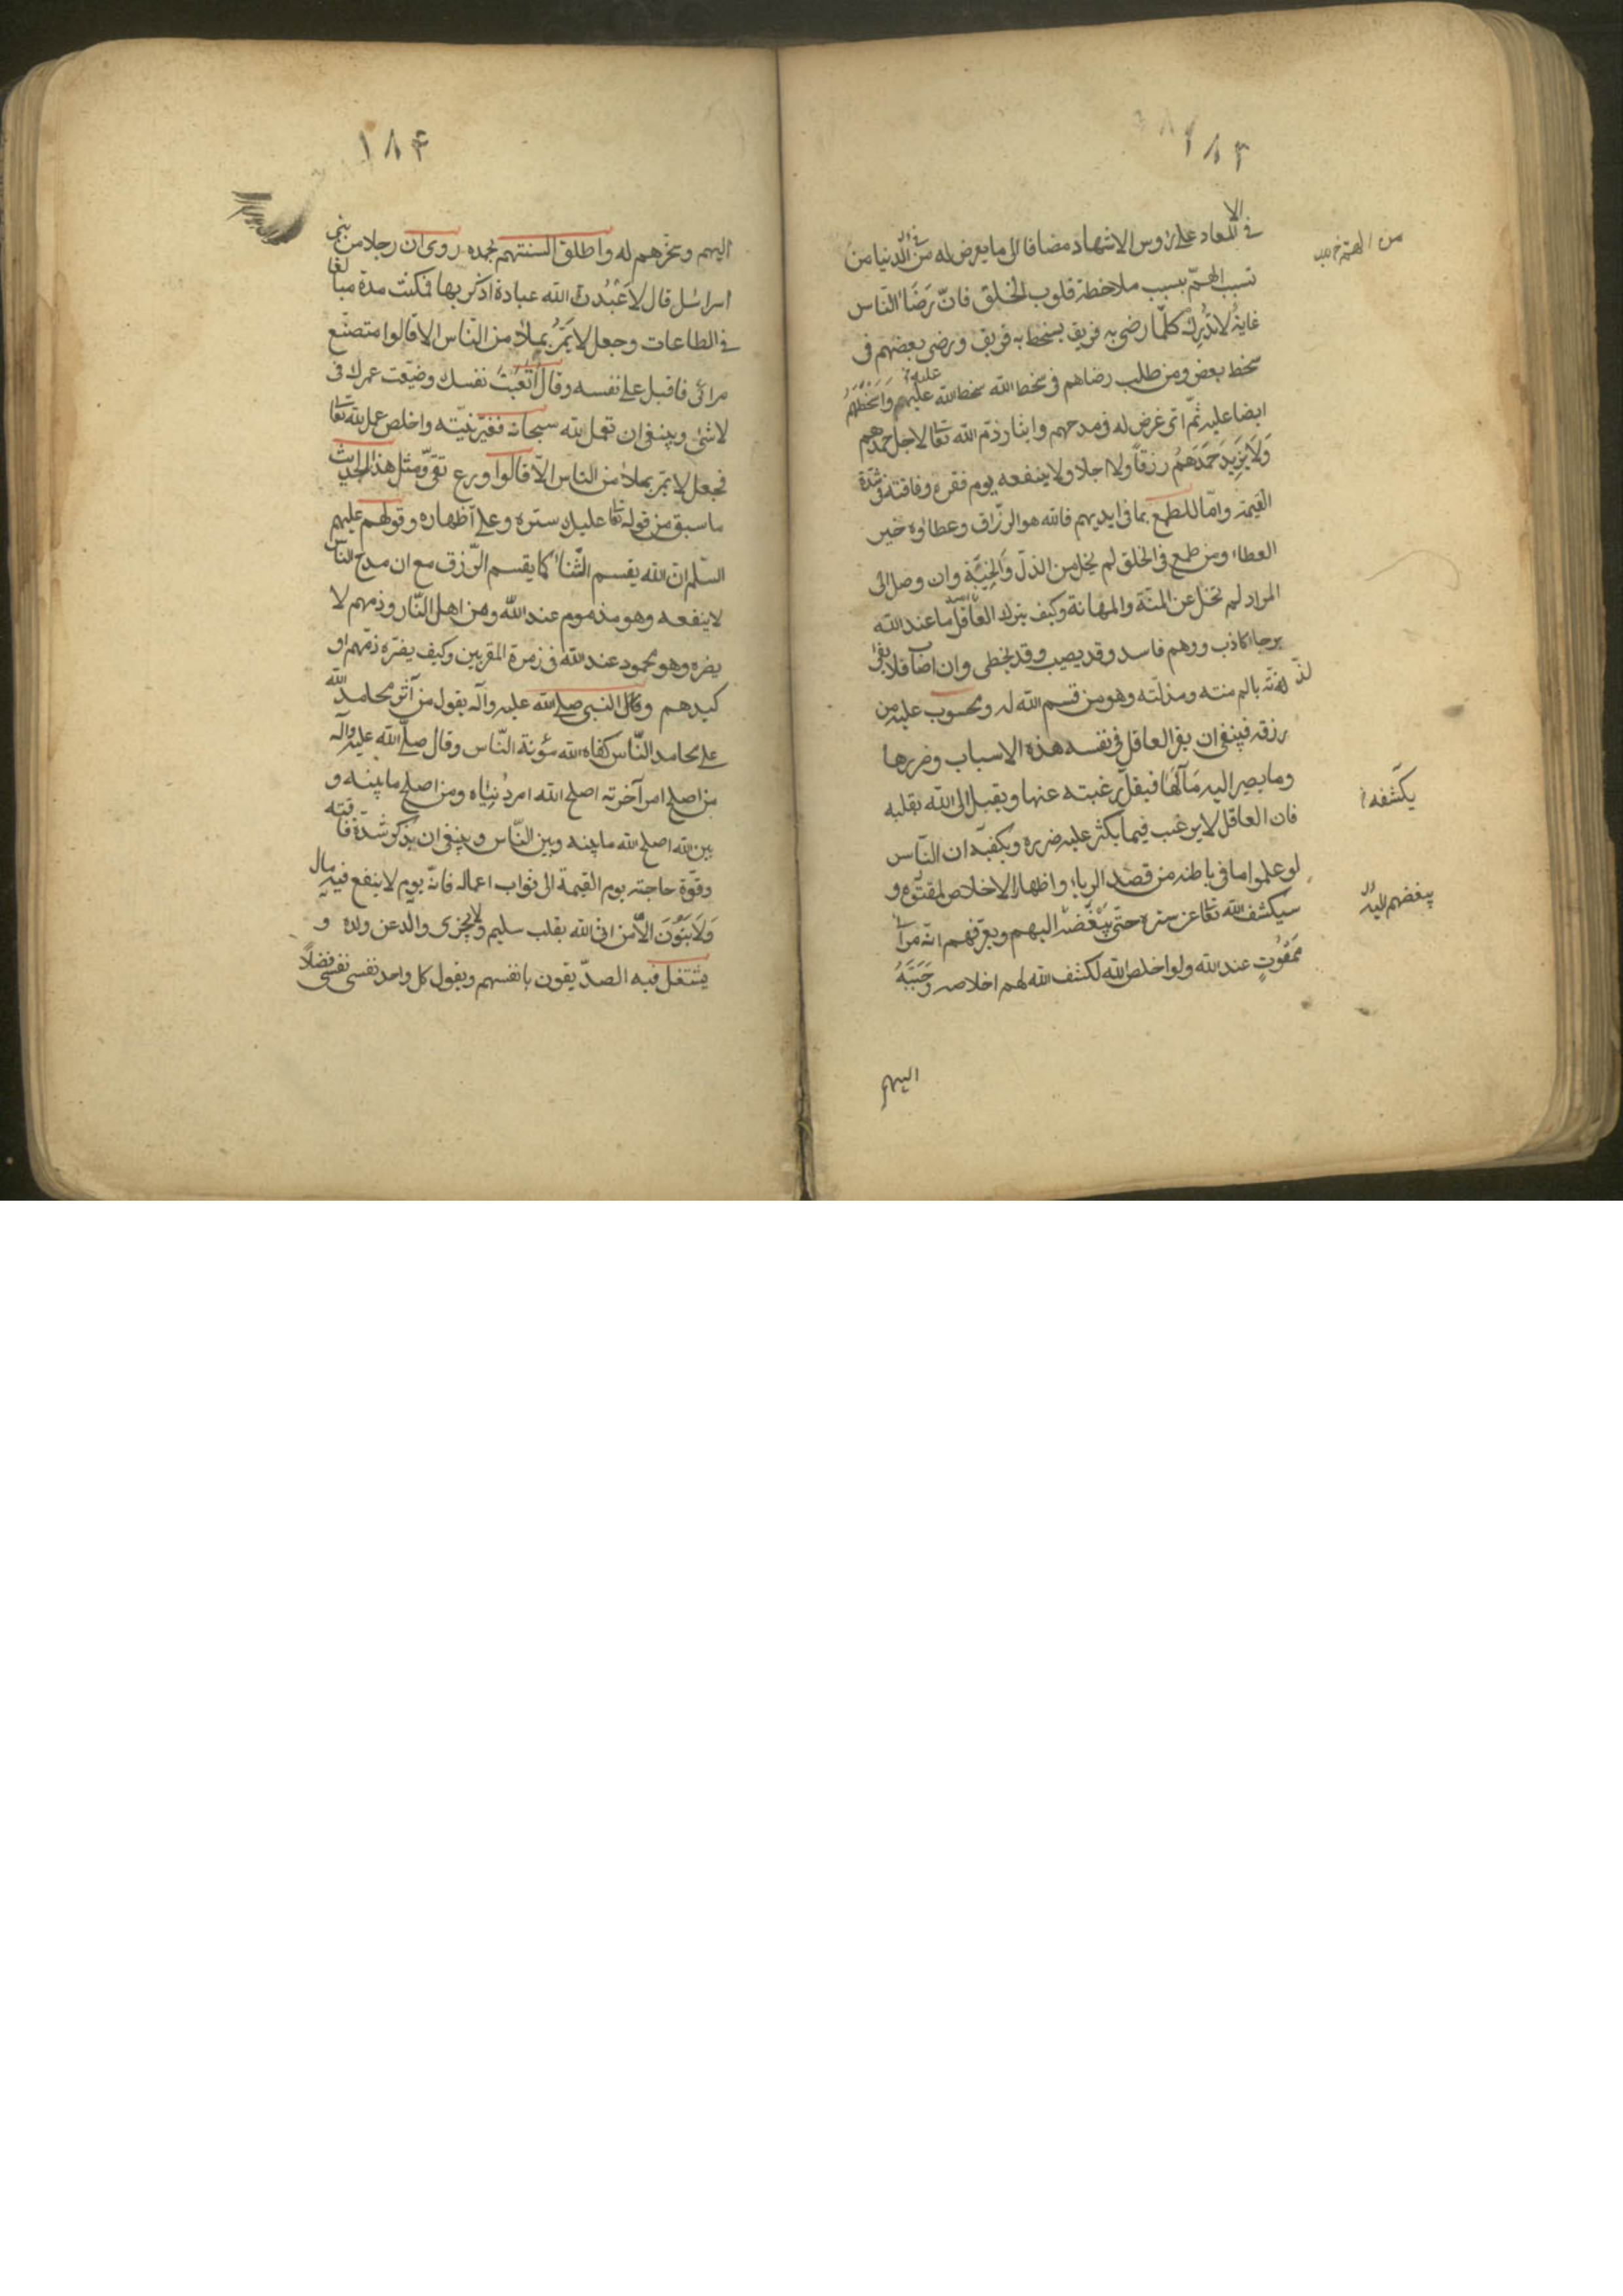 ١٨٣
في المعاد على رؤس الاشهاد مضافا الى ما يعرض له من الدنيا من
تسبب الهمّ بسبب ملاحظة قلوب الخلق فانّ رَضَاءَ النّاس
غاية لا تُدْرِكْ كلّما رضى به فريق يسخط به فريق ورضى بعضهم فى
سخط بعض ومن طلب رضاهم فى سخط الله سخط الله عليهم وَاَسْخَطَهُمْ
ايضا عليه ثمّ اىّ غرض له فى مدحهم وايثار ذمّ الله تعا لاجل حمدهم
وَلَا يَزِيدَ حَمَدَهُمُ رزقاً ولا اجلا ولا ينفعه يوم فقره وفاقته فى شدّة
القيمة وامّا للطمع بما فى ايديهم فالله هو الرزّاق وعطاؤه خير
العطاء ومن طمع فى الخلق لم يخل من الذلّ وَالخَيْبَةِ وان وصل الى
المراد لم تخل عن المنّة والمهانة وكيف يترك العاقل ما عند الله
برجاء كاذب ووهم فاسد وقد يصيب وقد يخطى وان اصاب فلا يفى
لذّته بالم منته ومذلّته وهو من قسم الله له ومحسوب عليه من
رزقه فينبغى ان يقرّ العاقل فى نفسه هذه الاسباب وضررها
وما يصير اليه مَآلُهَا فيقلّ رغبته عنها ويقبل الى الله بقلبه
فان العاقل لا يرغب فيما يكثر عليه ضرره ويكفيه ان النّاس
لو علموا ما فى باطنه من قصد الرياء واظهار الاخلاص لمقتوه و
سيكشف الله تعا عن ستره حتّى يَبْغَضَه اليهم ويعرّفهم انّه مراء
مَمْقُوتٍ عند الله ولو اخلص لله لكشف الله لهم اخلاصه وَحَبَّبَهُ
اليهم
يكشفه
يبغضهم اليه
١٨۴
اليهم وسخّرهم له واطلق السنتهم بحمده روى ان رجلا من بنى
اسرائل قال لاَعْبُدَنّ الله عبادة اذكر بها فمكث مدة مبالغا
فى الطاعات وجعل لا يَمُرُّ بملاء من النّاس الا قالوا متصنّع
مرائى فاقبل على نفسه وقال اَتْعَبْتُ نفسك وضيّعت عمرك فى
لا شئ وينبغى ان تعمل لله سبحانه فغيّر نيّته واخلص عمله لله تعا
فجعل لا يمر بملاء من الناس الّا قالوا ورع تقىّ ومثل هذا الحديث
ما سبق من قوله تعا عليك ستره وعلىّ اظهاره وقولهم عليهم
السّلم ان الله يقسم الثّناء كما يقسم الرّزق مع ان مدح النّاس
لا ينفعه وهو مذموم عند الله ومن اهل النّار وذمهم لا
يضره وهو محمود عند الله فى زمرة المقربين وكيف يضره ذمّهم او
كيدهم وقال النبى صلى الله عليه وآله يقول من آثر محامد الله
على محامد النّاس كفاه الله مؤنة النّاس وقال صلّى الله عليه وآله
من اصلح امر آخرته اصلح الله امر دُنيَاه ومن اصلح ما بينه و
بين الله اصلح الله ما بينه وبين النّاس وينبغى ان يذكر شدّة فاقته
وقوّة حاجته يوم القيمة الى ثواب اعماله فانّه يوم لا ينفع فيه مال
وَلَا بَنُوْنَ الّا من اتى الله بقلب سليم ولا يجزى والد عن ولده و
يشتغل فيه الصدّيقون بانفسهم ويقول كل واحد نفسى نفسى فضلاً